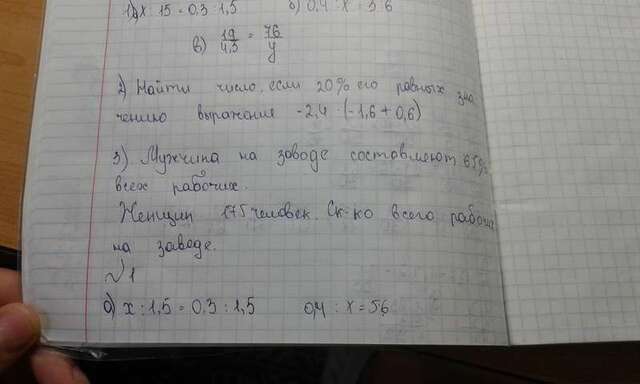 1) x 15 = 0,3 1,5 б) 0,4 : x = 56
в) 19/4,5 = 76/y
2) Найти число, если 20% его равных зна
чению выражения -2,4 · (-1,6 + 0,6)
3) Мужчина на заводе составляют 65%
всех рабочих.
Женщин 175 человек. Ск-ко всего рабочих
на заводе.
№1
а) x : 1,5 = 0,3 : 1,5 0,4 : x = 56